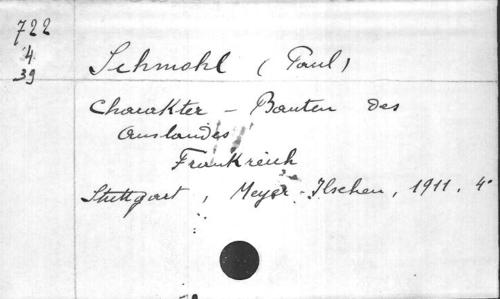 722
4
39
Schmohl (Paul)
Charakter - Bauten des
Auslandes
Frankreich
Stuttgart, Meyer-Ilschen, 1911, 4°